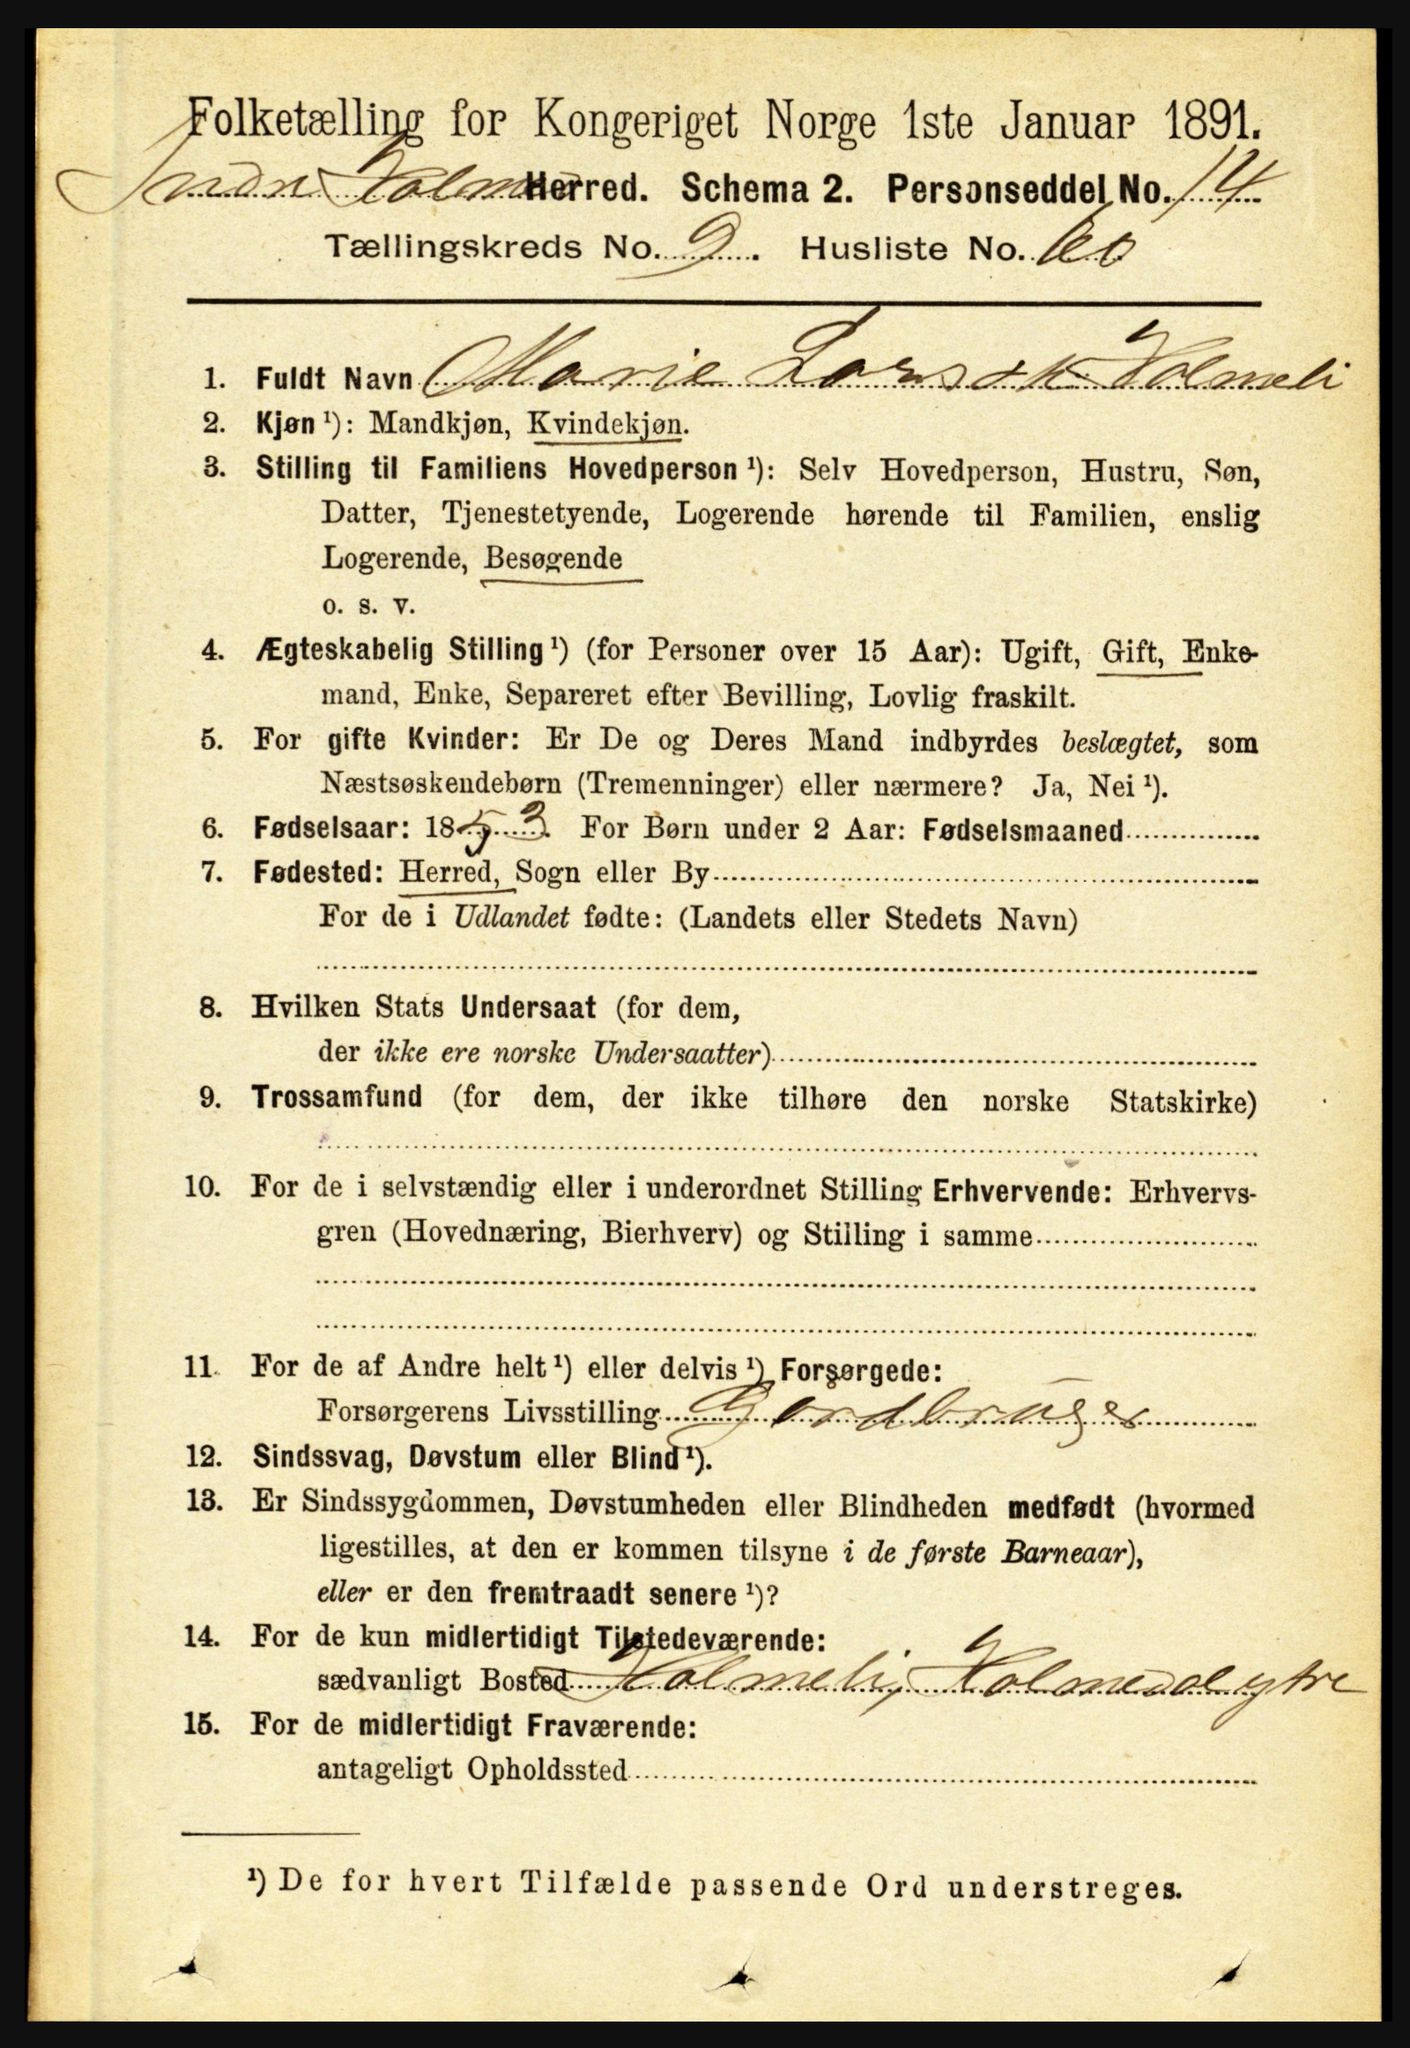 Folketælling for Kongeriget Norge 1ste Januar 1891.
Indr. Holmed Herred. Schema 2. Personseddel No. 14
Tællingskreds No. 9. Husliste No. 60
1. Fuldt Navn Marie Larsdtr Holmeli
2. Kjøn ¹): Mandkjøn, Kvindekjøn.
3. Stilling til Familiens Hovedperson ¹): Selv Hovedperson, Hustru, Søn,
Datter, Tjenestetyende, Logerende hørende til Familien, enslig
Logerende, Besøgende
o. s. v.
4. Ægteskabelig Stilling ¹) (for Personer over 15 Aar): Ugift, Gift, Enke-
mand, Enke, Separeret efter Bevilling, Lovlig fraskilt.
5. For gifte Kvinder: Er De og Deres Mand indbyrdes beslægtet, som
Næstsøskendebørn (Tremenninger) eller nærmere? Ja, Nei ¹).
6. Fødselsaar: 1853. For Børn under 2 Aar: Fødselsmaaned
7. Fødested: Herred, Sogn eller By
For de i Udlandet fødte: (Landets eller Stedets Navn)
8. Hvilken Stats Undersaat (for dem,
der ikke ere norske Undersaatter)
9. Trossamfund (for dem, der ikke tilhøre den norske Statskirke)
10. For de i selvstændig eller i underordnet Stilling Erhvervende: Erhvervs-
gren (Hovednæring, Bierhverv) og Stilling i samme
11. For de af Andre helt ¹) eller delvis ¹) Forsørgede:
Forsørgerens Livsstilling Gardbruger
12. Sindssvag, Døvstum eller Blind ¹).
13. Er Sindssygdommen, Døvstumheden eller Blindheden medfødt (hvormed
ligestilles, at den er kommen tilsyne i de første Barneaar),
eller er den fremtraadt senere ¹)?
14. For de kun midlertidigt Tilstedeværende:
sædvanligt Bosted Holmeli, Holmedal ytre
15. For de midlertidigt Fraværende:
antageligt Opholdssted
¹) De for hvert Tilfælde passende Ord understreges.